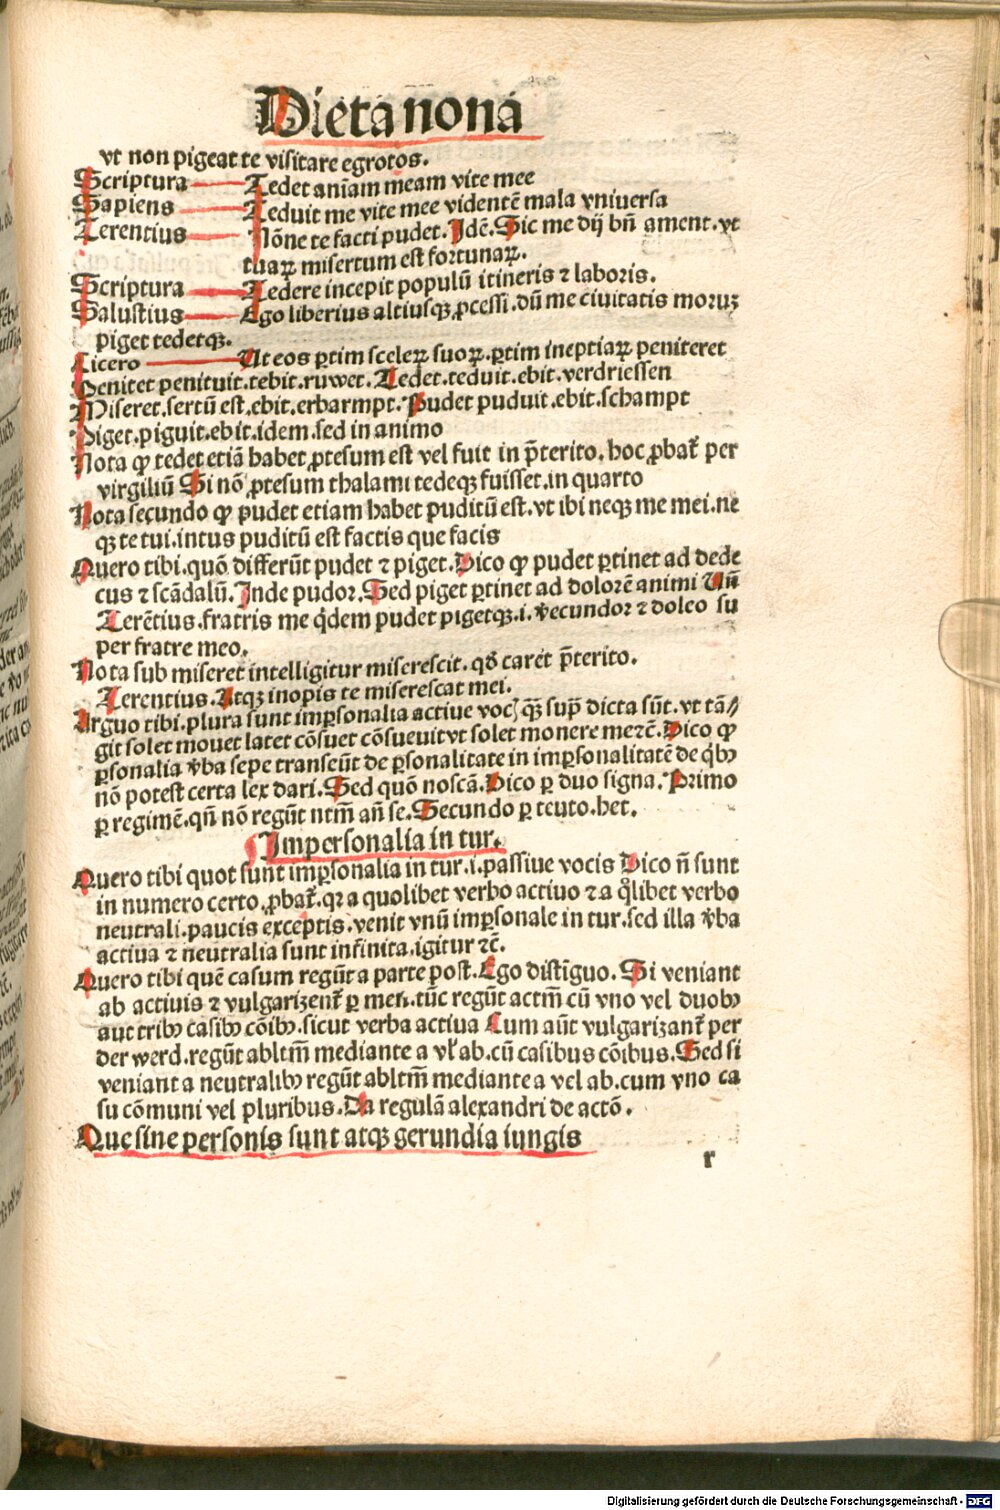 Dieta nona
vt non pigeat te visitare egrotos.
Scriptura Tedet aniam meam vite mee
Sapiens Teduit me vite mee videntē mala vniuersa
Terentius Nōne te facti pudet. Idē. Sic me dij bn̄ ament. vt
tuaꝝ misertum est fortunaꝝ.
Scriptura Tedere incepit populū itineris ⁊ laboris.
Salustius Ego liberius altiusqꝫ ꝓcessi. dū me ciuitatis moruꝫ
piget tedetqꝫ.
Cicero Ut eos ꝑtim sceleꝝ suoꝝ. ꝑtim ineptiaꝝ peniteret
Penitet penituit. tebit. ruwet. Tedet. teduit. ebit. verdriessen
Miseret. sertū est. ebit. erbarmpt. Pudet puduit. ebit. schampt
Piget. piguit. ebit. idem. sed in animo
Nota ꝙ tedet etiā habet ꝑtesum est vel fuit in p̄terito. hoc ꝓbat̄ per
virgiliū Si nō ꝑtesum thalami tedeqꝫ fuisset. in quarto
Nota secundo ꝙ pudet etiam habet puditū est. vt ibi neqꝫ me mei. ne
qꝫ te tui. intus puditū est factis que facis
Quero tibi. quō differūt pudet ⁊ piget. Dico ꝙ pudet ꝑtinet ad dede
cus ⁊ scādalū. Inde pudor. Sed piget ꝑtinet ad dolorē animi Un̄
Terētius. fratris me q̇dem pudet pigetqꝫ. i. v̄ecundor ⁊ doleo su
per fratre meo.
Nota sub miseret intelligitur miserescit. qḋ caret p̄terito.
Terentius. Atqꝫ inopis te miserescat mei.
Arguo tibi. plura sunt imꝑsonalia actiue voc̄ qꝫ sup̄ dicta sūt. vt tā⸗
git solet mouet latet cōsuet cōsueuit vt solet monere me ⁊c̄. Dico ꝙ
ꝑsonalia v̄ba sepe transeūt de ꝑsonalitate in imꝑsonalitatē de q̇bꝰ
nō potest certa lex dari. Sed quō noscā. Dico ꝑ duo signa. Primo
ꝑ regimē. qn̄ nō regūt ntm̄ an̄ se. Secundo ꝑ teuto. het.
Impersonalia in tur.
Quero tibi quot sunt imꝑsonalia in tur. i. passiue vocis Dico n̄ sunt
in numero certo. ꝓbat̄. qꝛ a quolibet verbo actiuo ⁊ a q̊libet verbo
neutrali. paucis exceptis. venit vnū imꝑsonale in tur. sed illa v̄ba
actiua ⁊ neutralia sunt infinita. igitur ⁊c̄.
Quero tibi quē casum regūt a parte post. Ego distīguo. Si veniant
ab actiuis ⁊ vulgarizent̄ ꝑ men. tūc regūt actm̄ cū vno vel duobꝰ
aut tribꝰ casibꝰ cōibꝰ. sicut verba actiua Cum aūt vulgarizant̄ per
der werd. regūt abltm̄ mediante a vl̄ ab. cū casibus cōibus. Sed si
veniant a neutralibꝰ regūt abltm̄ mediante a vel ab. cum vno ca
su cōmuni vel pluribus. Da regulā alexandri de actō.
Que sine personis sunt atqꝫ gerundia iungis
r
Digitalisierung gefördert durch die Deutsche Forschungsgemeinschaft - DFG